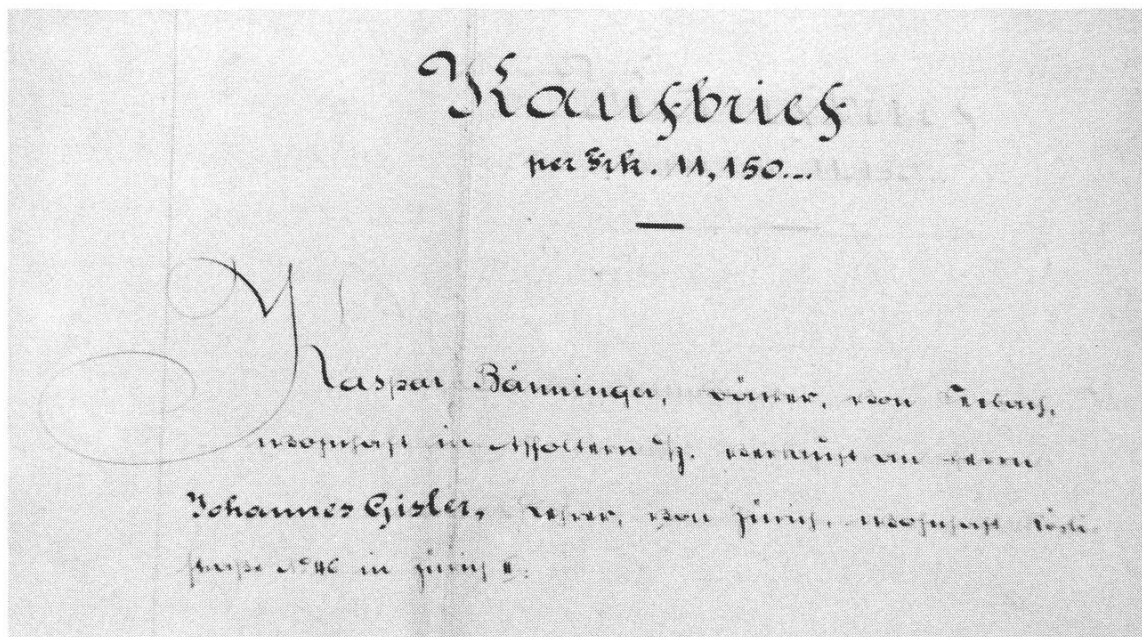 Kaufbrief
per Frk. 11,150.--
Kaspar Bänninger, von Seebach,
wohnhaft in Affoltern b/Z. verkauft an Herrn
Johannes Gisler, Lehrer, von Zürich, wohnhaft
straße No 46 in Zürich